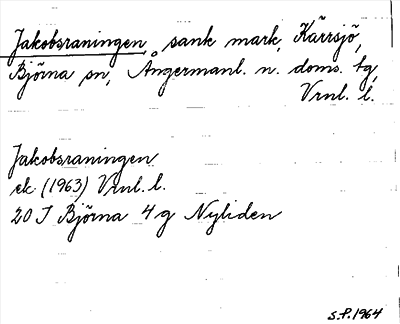 Jakobsraningen, sank mark, Kärrsjö,
Björna sn, Ångermanl. n. doms. tg,
Vrnl. l.
Jakobsraningen
ek (1963) Vrnl. l.
20 I Björna 4 g Nyliden
S.P. 1964